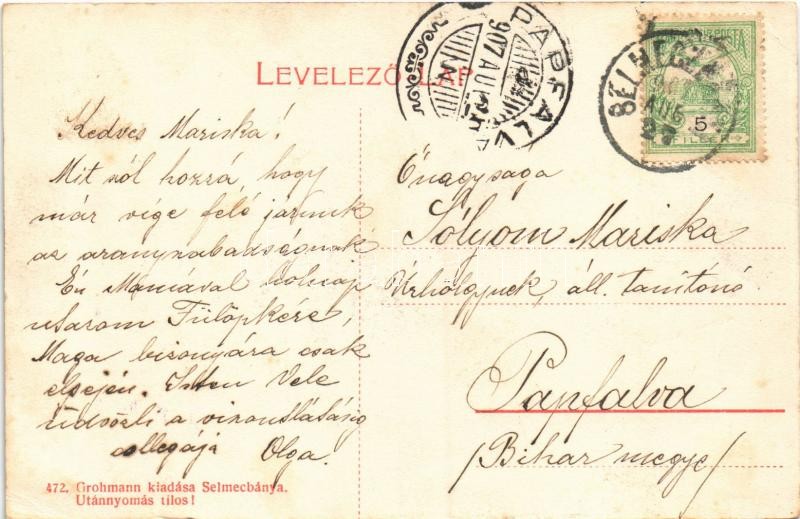 LEVELEZŐ LAP
PAPFALVA
907 AUG
SELMECZ
AUG
5
FILLÉR
Kedves Mariska!
Mit szól hozzá, hogy
már vége felé járunk
az aranyszabadságnak
Én Mamával holnap
utazom Fülöpkére,
Maga bizonyára csak
elsején. Isten Vele
üdvözli a viszontlátásig
collegája Olga.
Őnagysága
Sólyom Mariska
Úrhölgynek, áll. tanítónő
Papfalva
/Bihar megye/
472. Grohmann kiadása Selmecbánya.
Utánnyomás tilos!